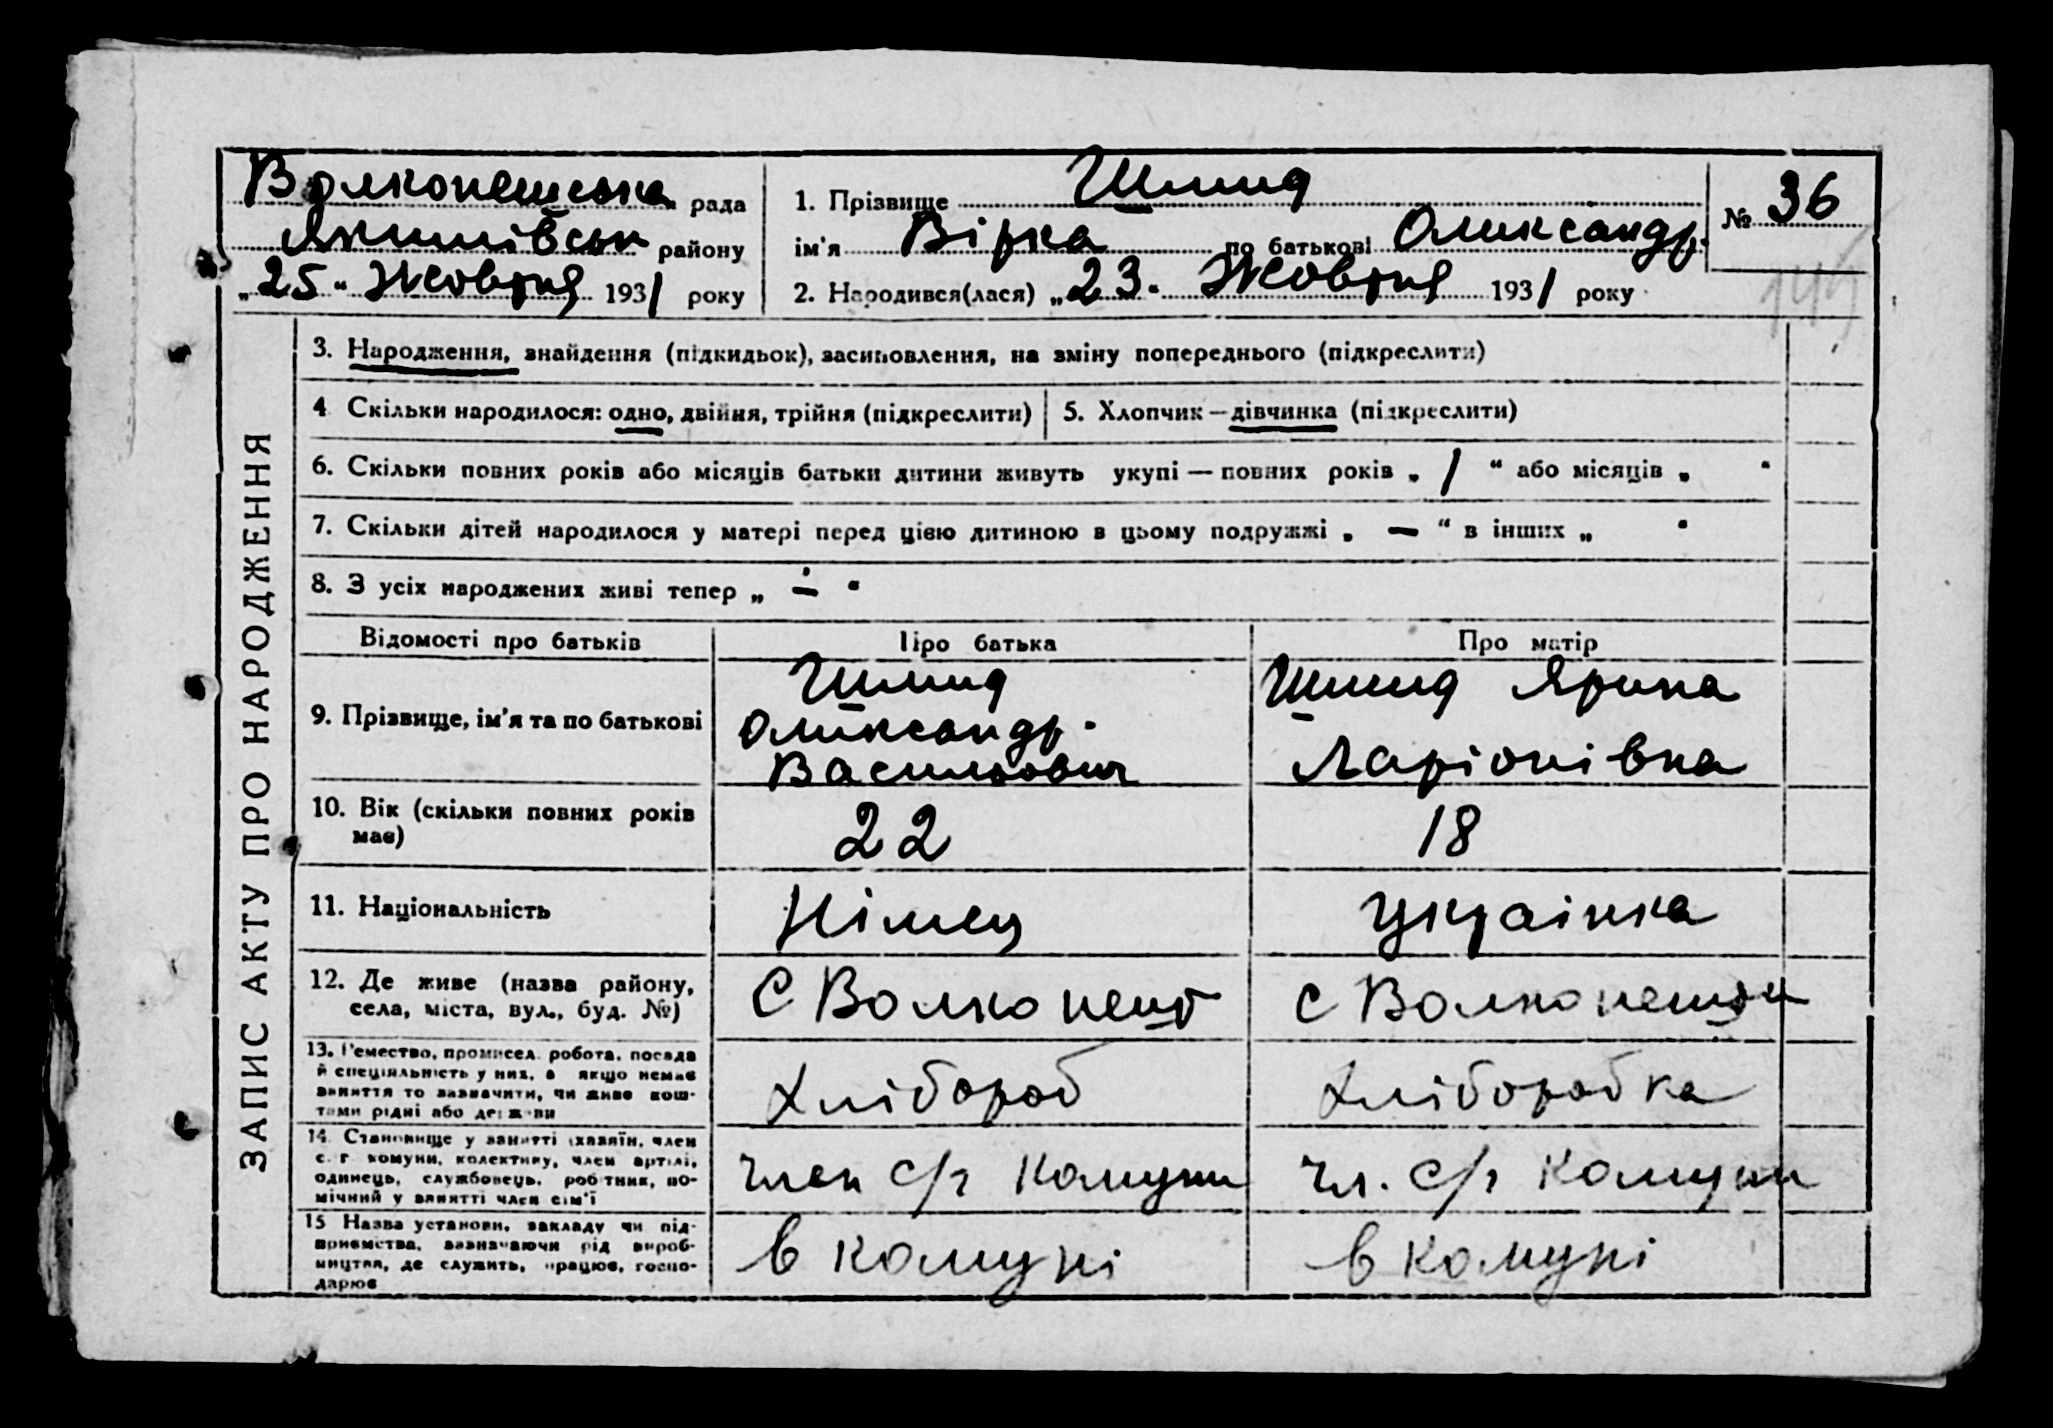 Волконешська рада
Якимівськ району
„25" Жовтня 1931 року
1. Прізвище Шмид
ім'я Вірка по батькові Олександр.
2. Народився(лася) „23. Жовтня 1931 року
№ 36
ЗАПИС АКТУ ПРО НАРОДЖЕННЯ
3. Народження, знайдення (підкидьок), засиновлення, на зміну попереднього (підкреслити)
4 Скільки народилося: одно, двійня, трійня (підкреслити)
5. Хлопчик – дівчинка (підкреслити)
6. Скільки повних років або місяців батьки дитини живуть укупі — повних років „ 1 " або місяців „ "
7. Скільки дітей народилося у матері перед цією дитиною в цьому подружжі „ — " в інших „ "
8. З усіх народжених живі тепер „ — "
Відомості про батьків
Про батька
Про матір
9. Прізвище, ім'я та по батькові
Шмид
Олександр.
Васильович
Шмид Ярина
Ларіонівна
10. Вік (скільки повних років
має)
22
18
11. Національність
Німец
Украінка
12. Де живе (назва району,
села, міста, вул., буд. №)
С Волконешт
с Волконешти
13. Ремество, промисел, робота, посада
й спеціяльність у них, а якщо немає
заняття то зазначити, чи живе кош-
тами рідні або держави
Хлібороб
Хліборобка
14. Становище у занятті (хазяїн, член
с. г. комуни, колективу, член артілі,
одинець, службовець, робітник, по-
мічний у занятті член сім'ї
член с/г комуни
чл. с/г комуни
15 Назва установи, закладу чи під-
приємства, зазначаючи рід вироб-
ництва, де служить, працює, госпо-
дарює
в комуні
в комуні